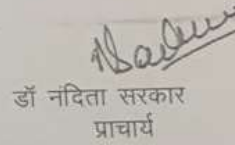 डॉ नंदिता सरकार
प्राचार्य